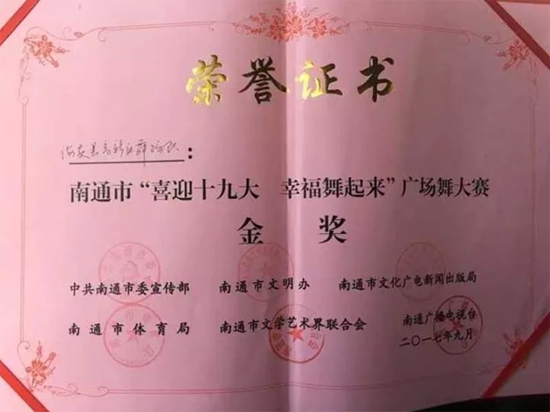 荣誉证书
海安县高新区舞蹈队：
南通市“喜迎十九大 幸福舞起来”广场舞大赛
金奖
中共南通市委宣传部 南通市文明办 南通市文化广电新闻出版局
南通市体育局 南通市文学艺术界联合会 南通广播电视台
二〇一七年九月